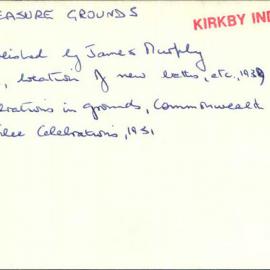 EASURE GROUNDS
KIRKBY IND
blished by James Murphy
, location of new baths, etc., 1939
erations in grounds, Commonwealth
ilee Celebrations, 1951